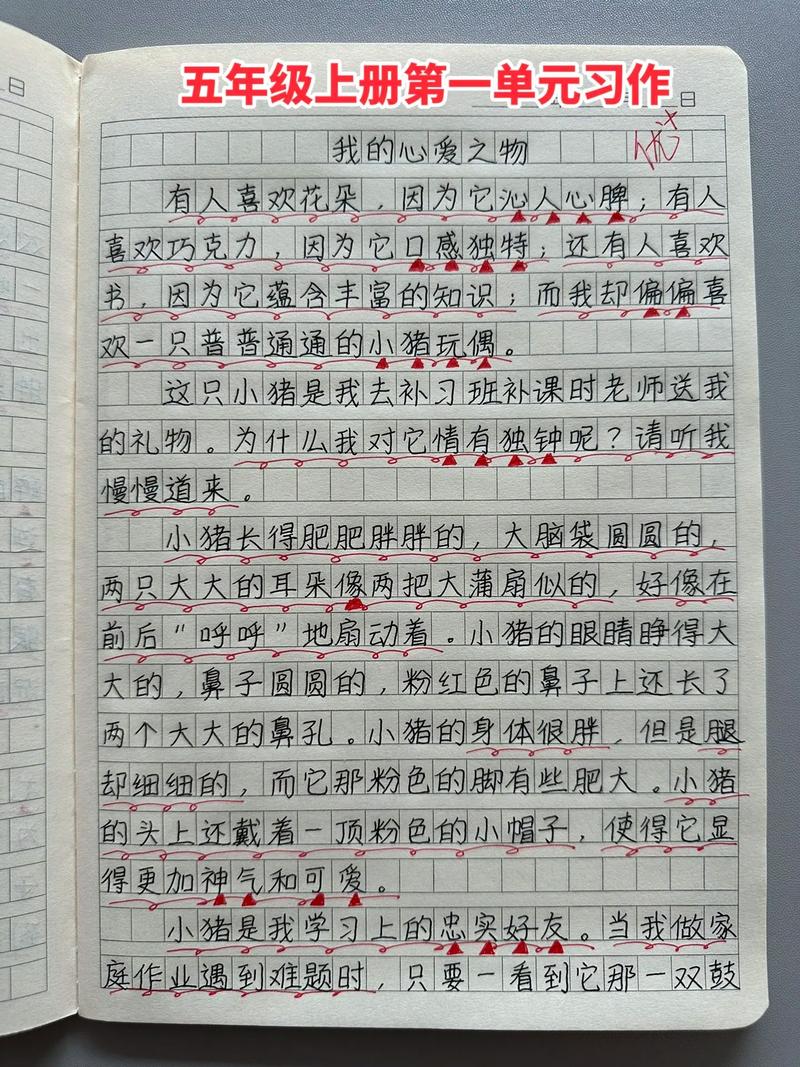 五年级上册第一单元习作
日
日
我的心爱之物
优+
有人喜欢花朵，因为它沁人心脾；有人
喜欢巧克力，因为它口感独特；还有人喜欢
书，因为它蕴含丰富的知识；而我却偏偏喜
欢一只普普通通的小猪玩偶。
这只小猪是我去补习班补课时老师送我
的礼物。为什么我对它情有独钟呢？请听我
慢慢道来。
小猪长得肥肥胖胖的，大脑袋圆圆的，
两只大大的耳朵像两把大蒲扇似的，好像在
前后“呼呼”地扇动着。小猪的眼睛睁得大
大的，鼻子圆圆的，粉红色的鼻子上还长了
两个大大的鼻孔。小猪的身体很胖，但是腿
却细细的，而它那粉色的脚有些肥大。小猪
的头上还戴着一顶粉色的小帽子，使得它显
得更加神气和可爱。
小猪是我学习上的忠实好友。当我做家
庭作业遇到难题时，只要一看到它那一双鼓